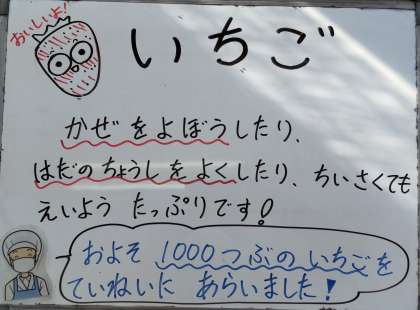 おいしいよ!
いちご
かぜをよぼうしたり、
はだのちょうしをよくしたり、ちいさくても
えいよう たっぷりです!
およそ 1000つぶの いちごを
ていねいに あらいました!